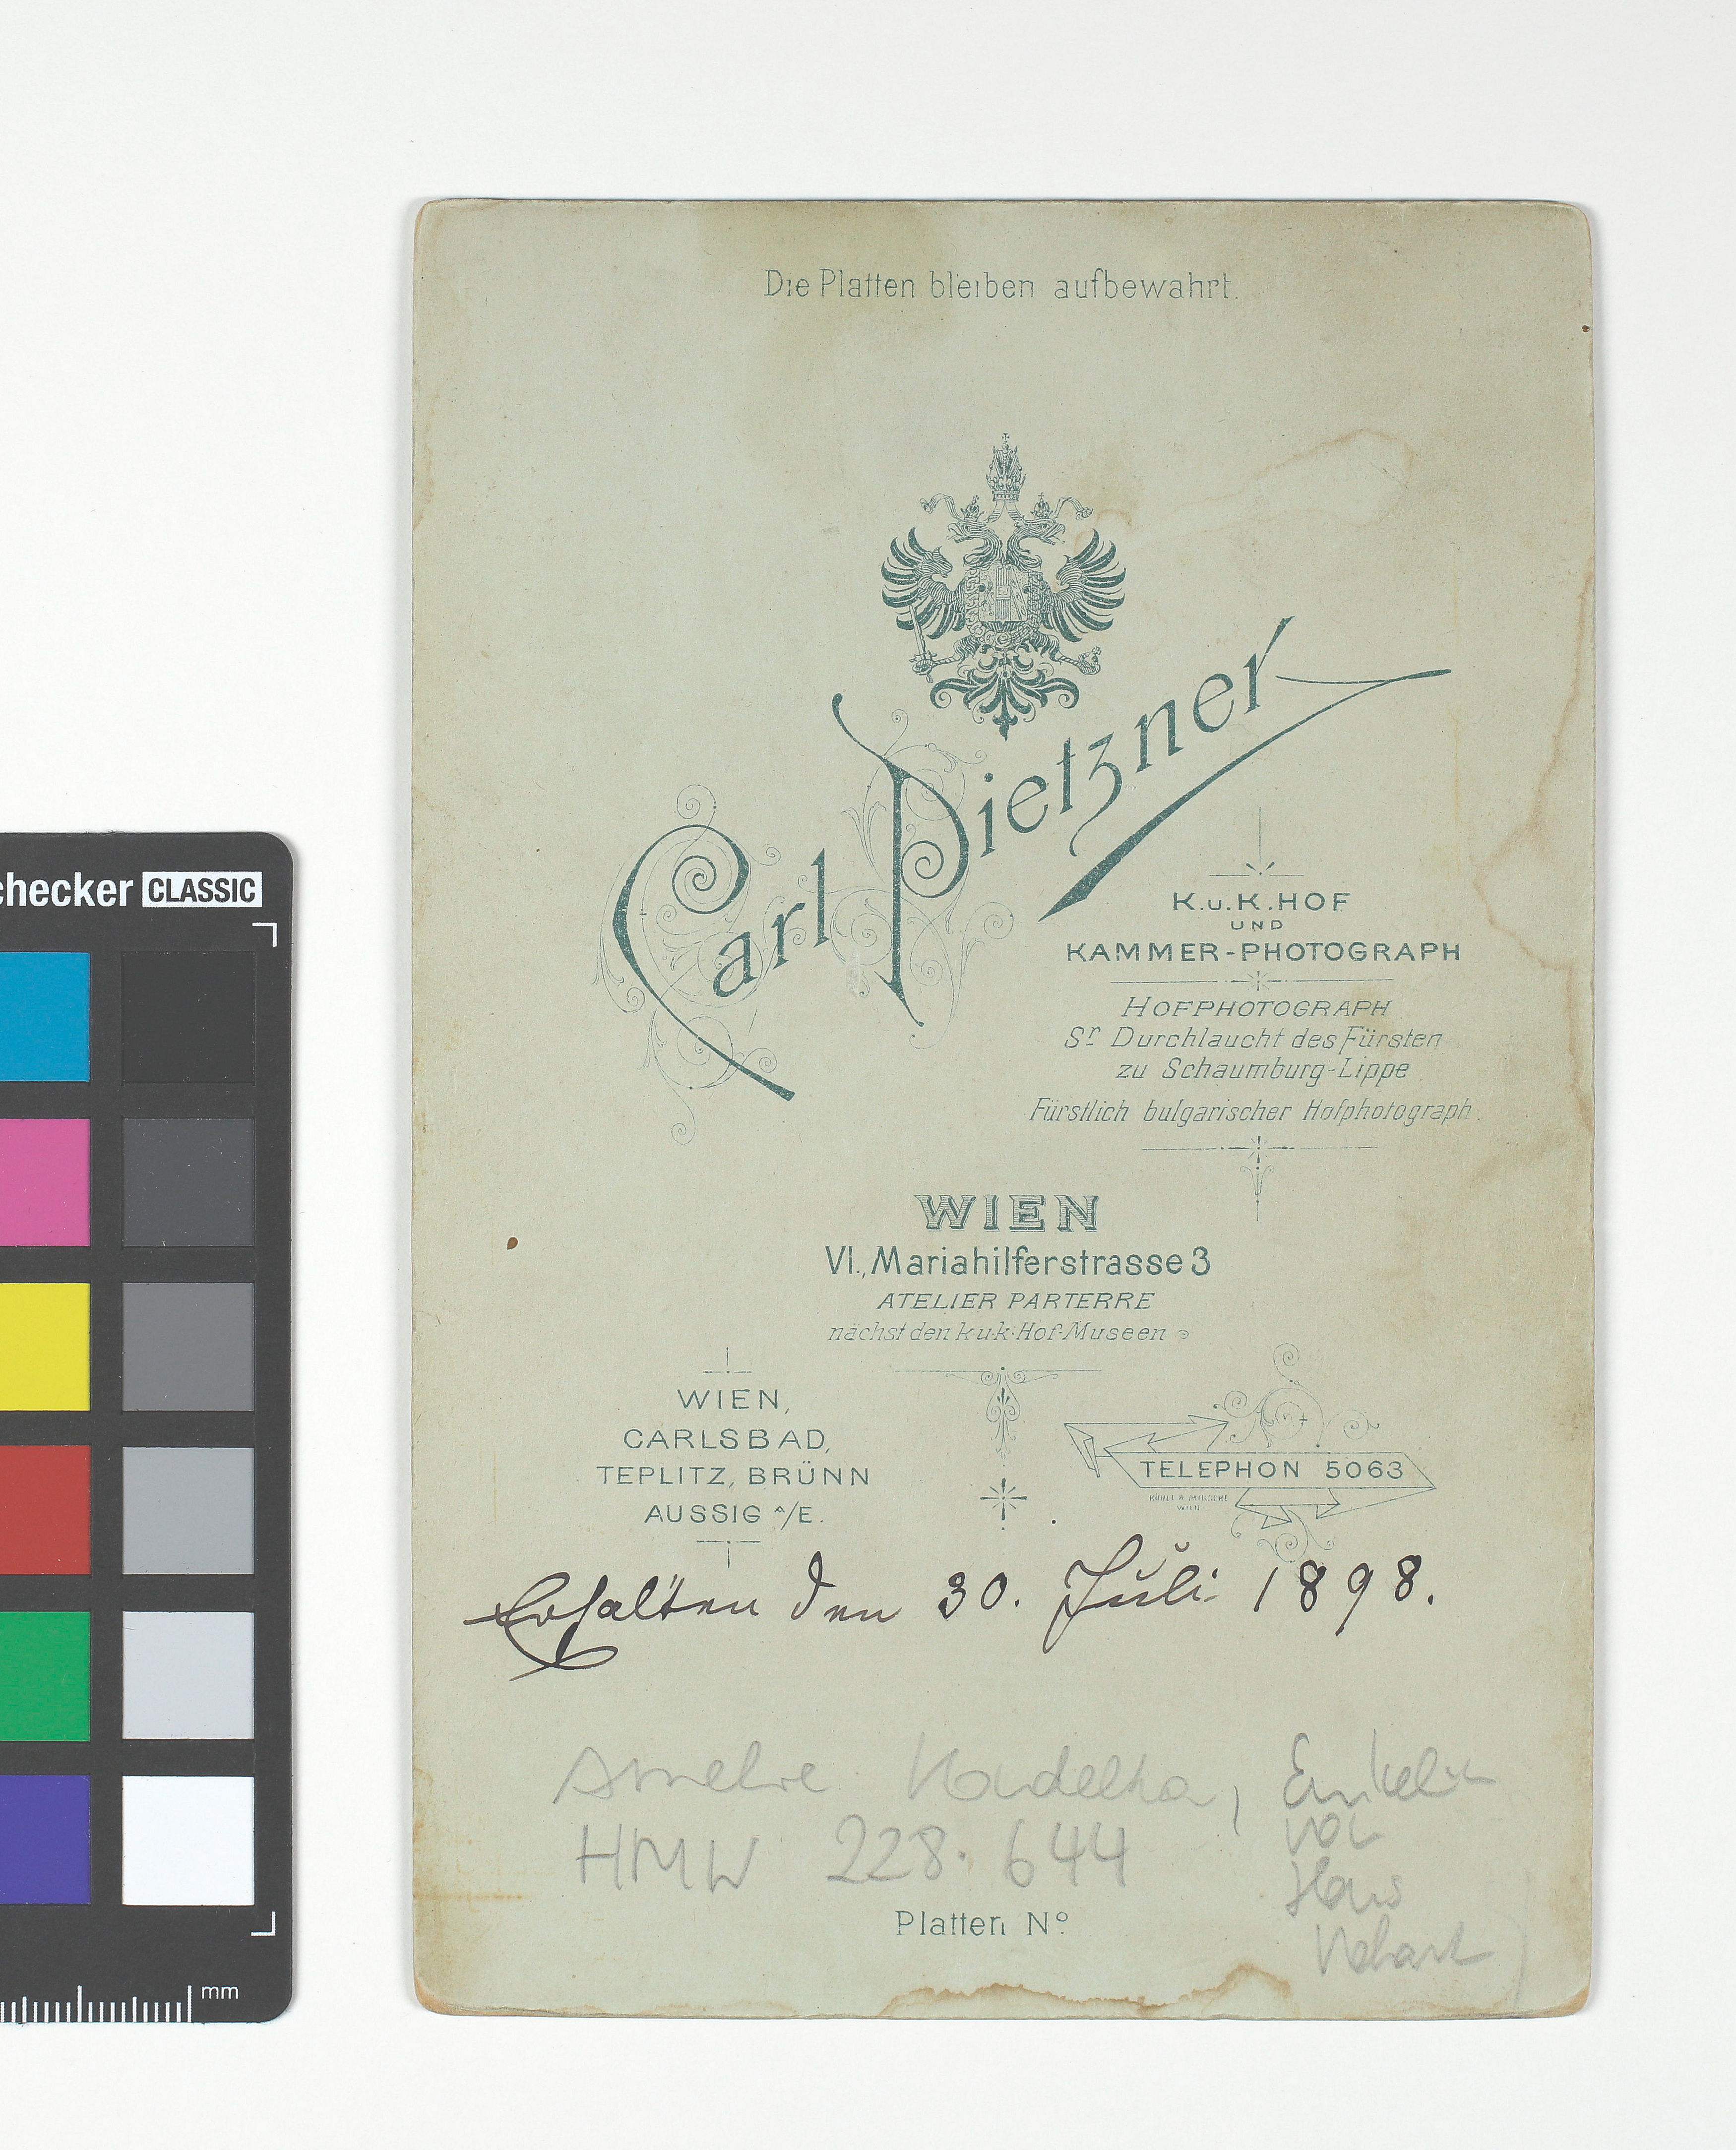 Die Platten bleiben aufbewahrt.
Carl Pietzner
K.u.K.HOF
UND
KAMMER-PHOTOGRAPH
HOFPHOTOGRAPH
Sr Durchlaucht des Fürsten
zu Schaumburg-Lippe
Fürstlich bulgarischer Hofphotograph.
WIEN
VI., Mariahilferstrasse 3
ATELIER PARTERRE
nächst den k.u.k. Hof-Museen
WIEN,
CARLSBAD,
TEPLITZ, BRÜNN
AUSSIG A/E.
TELEPHON 5063
WIEN
Erhalten den 30. Juli 1898.
Amelie Kudelka, Enkelin
von
Hans
HMW 228.644
Platten No
checker CLASSIC
mm